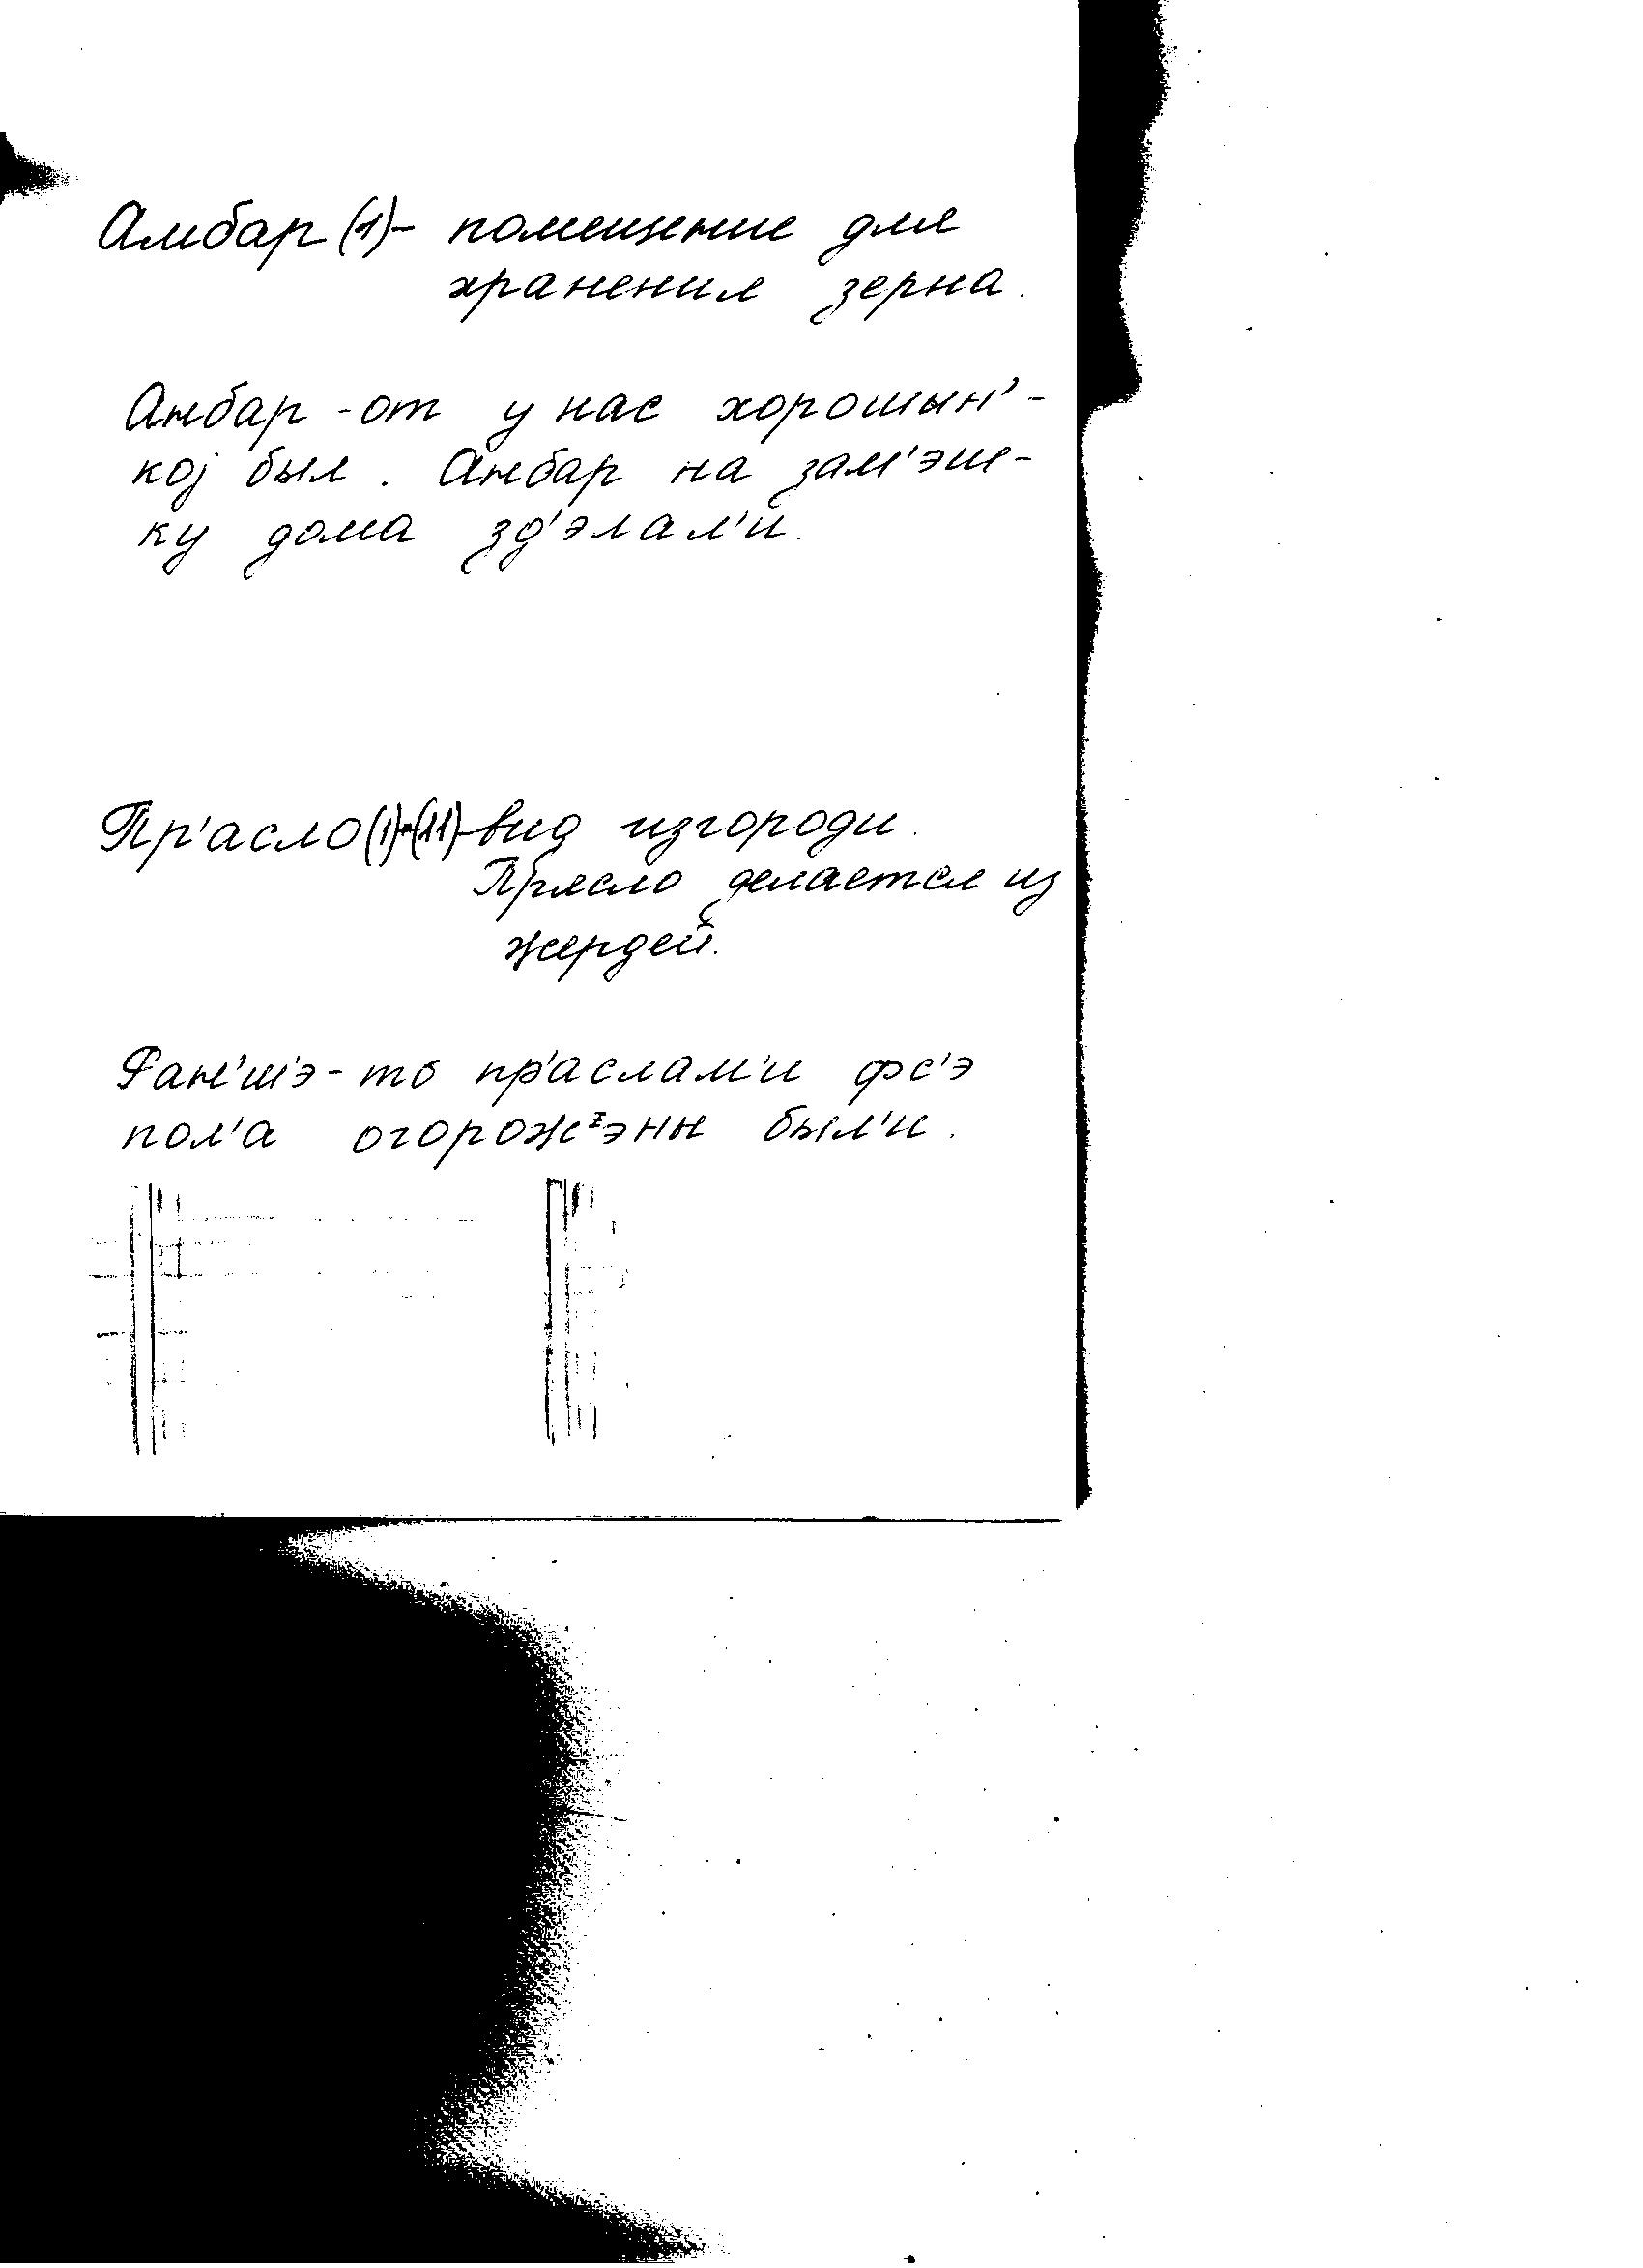 Амбар (1)- помещение для
хранения зерна.
Анбар -от у нас хорошын'-
кој был. Анбар на зам'эш-
ку дома зд'элал'и.
Пр'асло (1)-(11)-вид изгороди.
Прясло делается из
жердей.
Ран'ш'э-то пр'аслам'и фс'э
пол'а огорожᶻэны был'и.